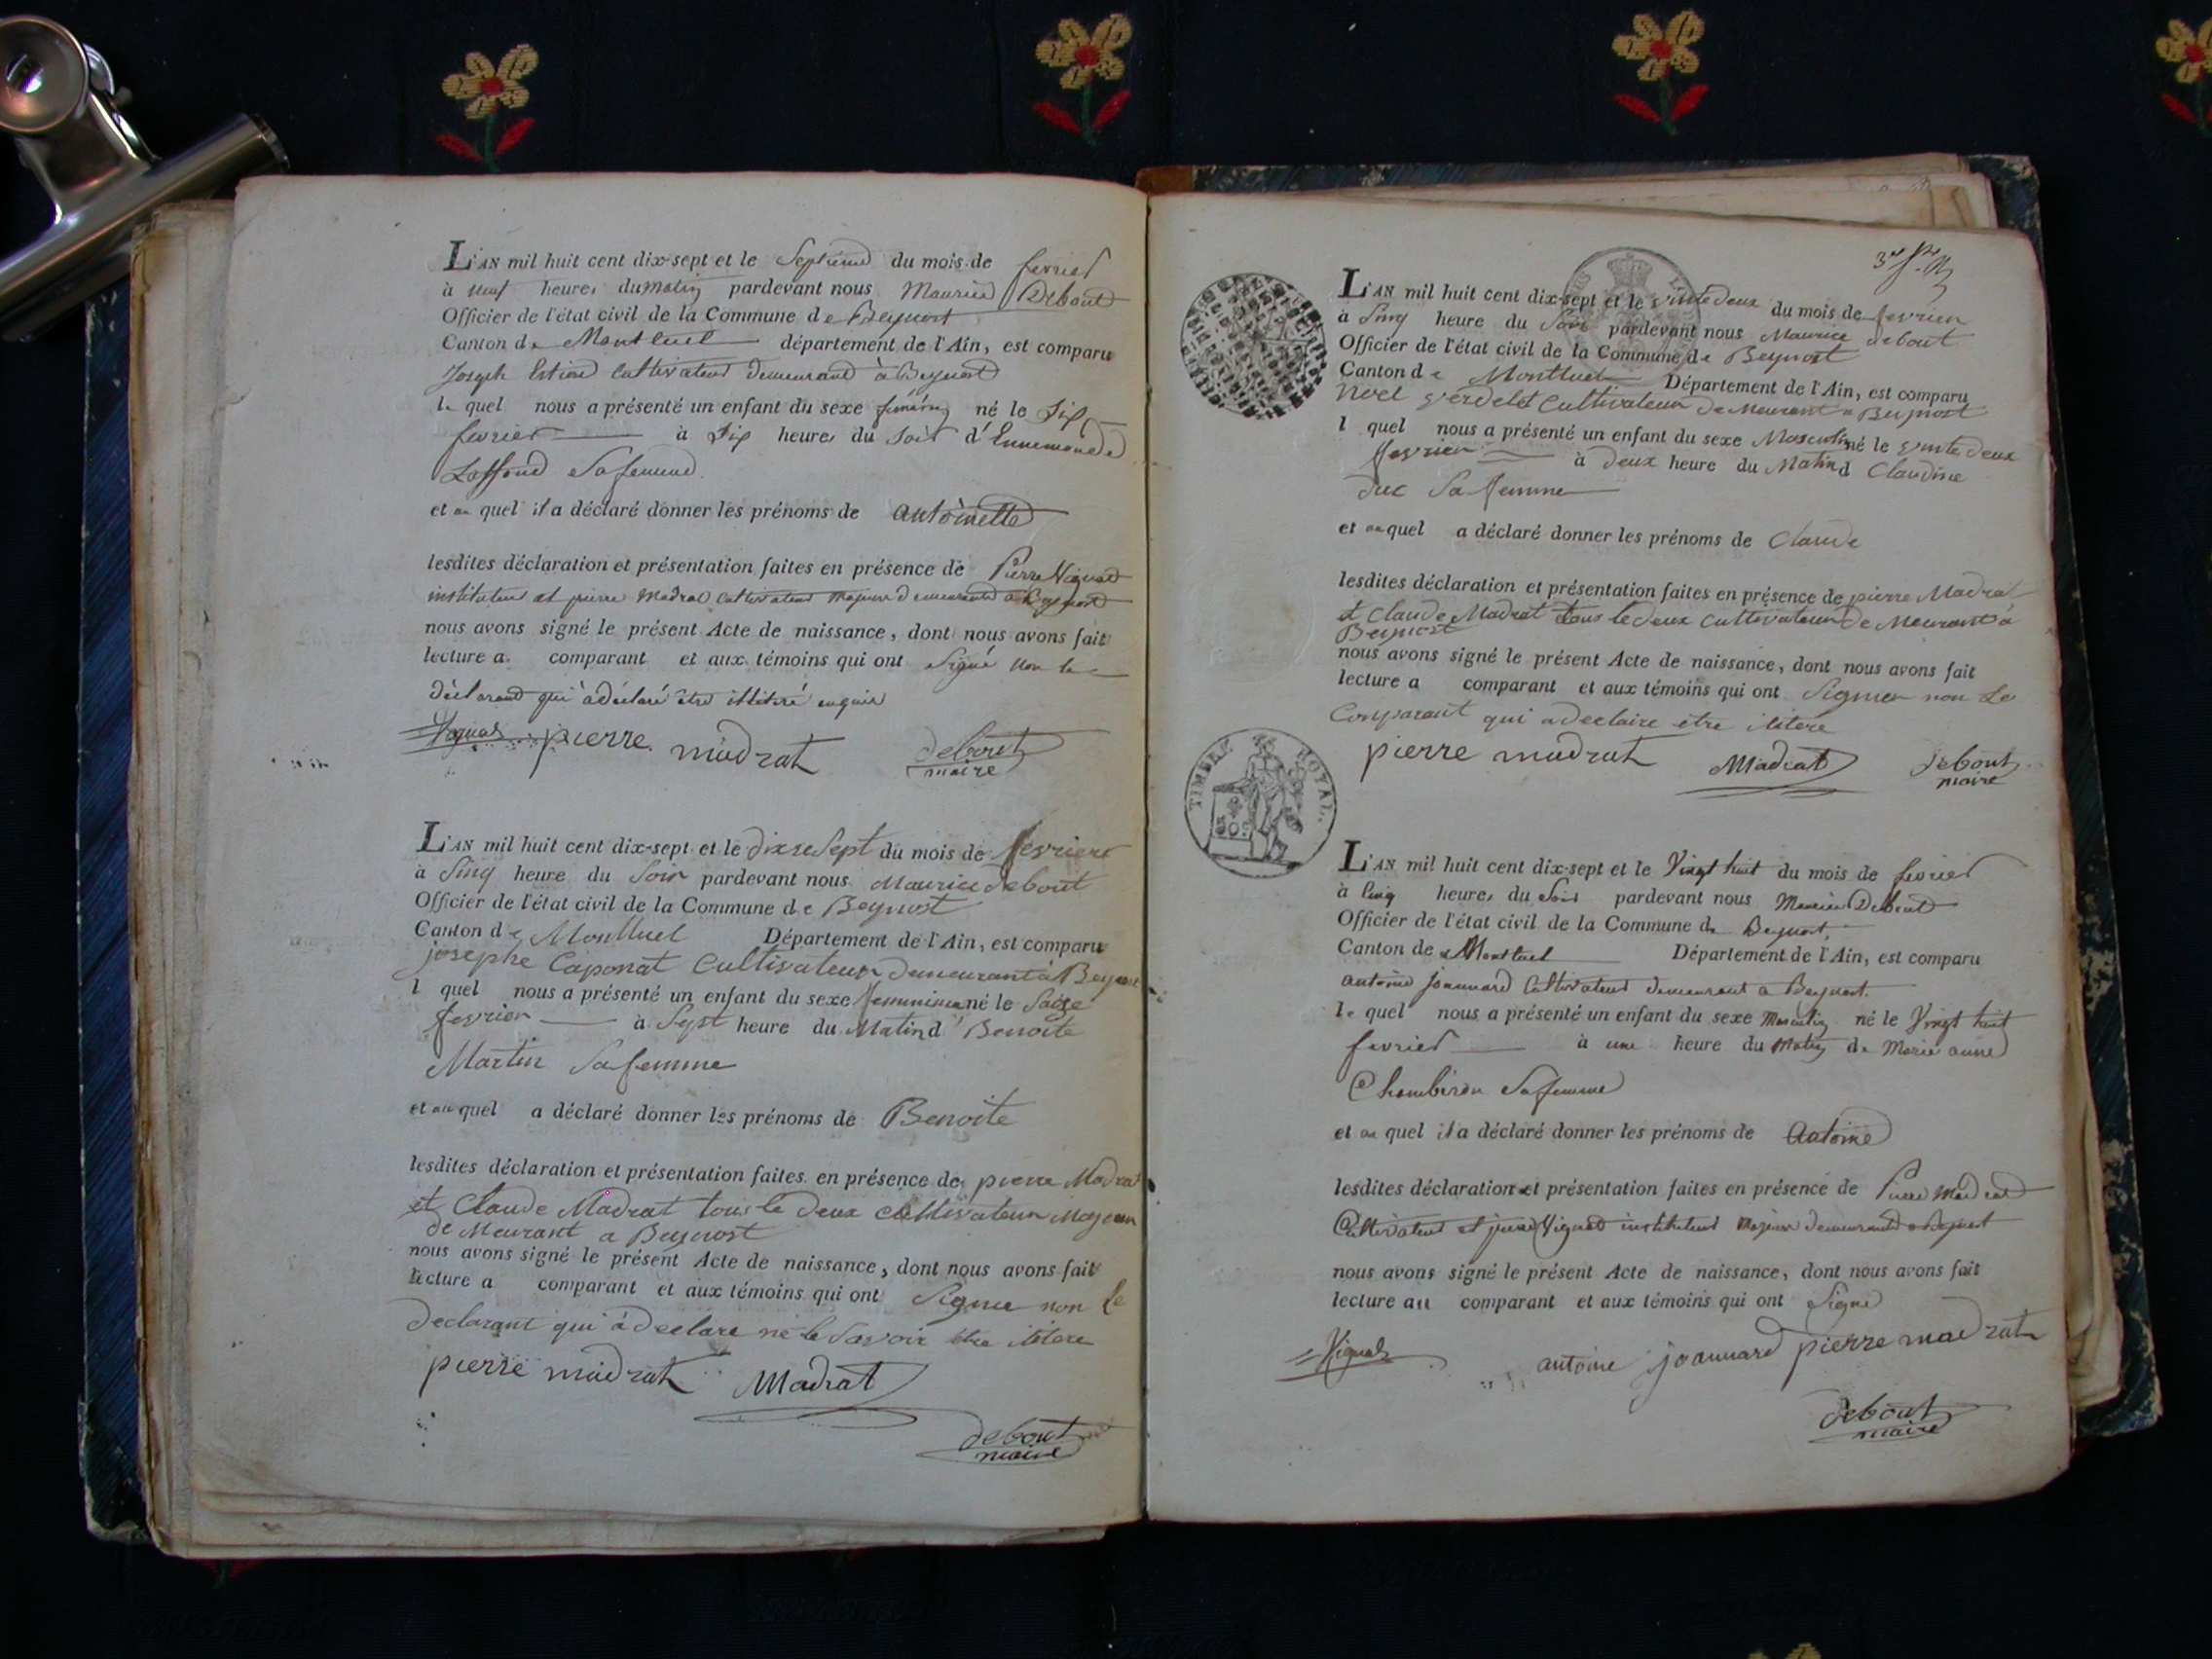 L'AN mil huit cent dix-sept et le Septieme du mois de fevrier
à neuf heures du matin pardevant nous Maurice Debout
Officier de l'état civil de la Commune de Beynost
Canton de Montluel département de l'Ain, est comparu
Joseph cultivateur demeurant à Beynost
le quel nous a présenté un enfant du sexe né le Six
fevrier à Six heures du Soir d'Ennemonde
Laffond Sa femme
et au quel il a déclaré donner les prénoms de antoinette
lesdites déclaration et présentation faites en présence de Pierre Vignat
instituteur et pierre Madrat cultivateur majeurs demeurants a Beynost
nous avons signé le présent Acte de naissance, dont nous avons fait
lecture a comparant et aux témoins qui ont Signé non le
déclarant qui à déclaré être illitéré enquis
pierre madrat debout
maire
L'AN mil huit cent dix-sept et le dixseSept du mois de fevrier
à Sinq heure du Soir pardevant nous Maurice debout
Officier de l'état civil de la Commune de Beynost
Canton de Montluel Département de l'Ain, est comparu
josephe Caponat Cultivateur demeurant à Beynost
l quel nous a présenté un enfant du sexe feminine né le Saize
fevrier à Sept heure du Matin d' Benoite
Martin Sa femme
et au quel a déclaré donner les prénoms de Benoite
lesdites déclaration et présentation faites en présence de pierre Madrat
et Claude Madrat tous le deux cultivateur Majeur
de Meurant a Beynost
nous avons signé le présent Acte de naissance, dont nous avons fait
lecture a comparant et aux témoins qui ont Signer non le
declarant qui à declare ne le Savoir etre ilitere
pierre madrat Madrat
debout
maire
L'AN mil huit cent dix-sept et le vinte deux du mois de fevrier
à Sinq heure du Soir pardevant nous Maurice debout
Officier de l'état civil de la Commune de Beynost
Canton de Montluel Département de l'Ain, est comparu
Noel verdelet Cultivateur de Meurant a Beynost
l quel nous a présenté un enfant du sexe Masculin né le vinte deux
fevrier à deux heure du Matin d Claudine
duc Sa femme
et au quel a déclaré donner les prénoms de Claude
lesdites déclaration et présentation faites en présence de pierre Madrat
et Claude Madrat tous le deux Cultivateur de Meurant à
Beynost
nous avons signé le présent Acte de naissance, dont nous avons fait
lecture a comparant et aux témoins qui ont Signer non Le
Comparant qui a declaire etre ilitere
pierre madrat Madrat debout
maire
TIMBRE ROYAL.
50c
L'AN mil huit cent dix-sept et le Vingt huit du mois de fevrier
à Cinq heures du Soir pardevant nous Maurice Debout
Officier de l'état civil de la Commune de Beynost,
Canton de Montluel Département de l'Ain, est comparu
antoine joannard Cultivateur demeurant a Beynost.
le quel nous a présenté un enfant du sexe Masculin né le Vingt huit
fevrier à une heure du Matin de Marie anne
Chambiron Sa femme
et au quel il a déclaré donner les prénoms de Antoine
lesdites déclaration et présentation faites en présence de Pierre Madrat
Cultivateur et Vignat instituteur Majeurs demeurants a Beynost
nous avons signé le présent Acte de naissance, dont nous avons fait
lecture au comparant et aux témoins qui ont Signé
antoine joannard pierre madrat
debout
maire